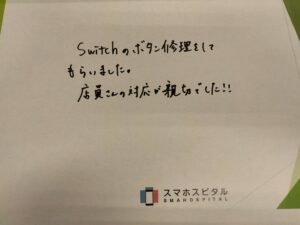 Switchのボタン修理をして
もらいました。
店員さんの対応が親切でした!!
スマホスピタル
SMAHOSPITAL